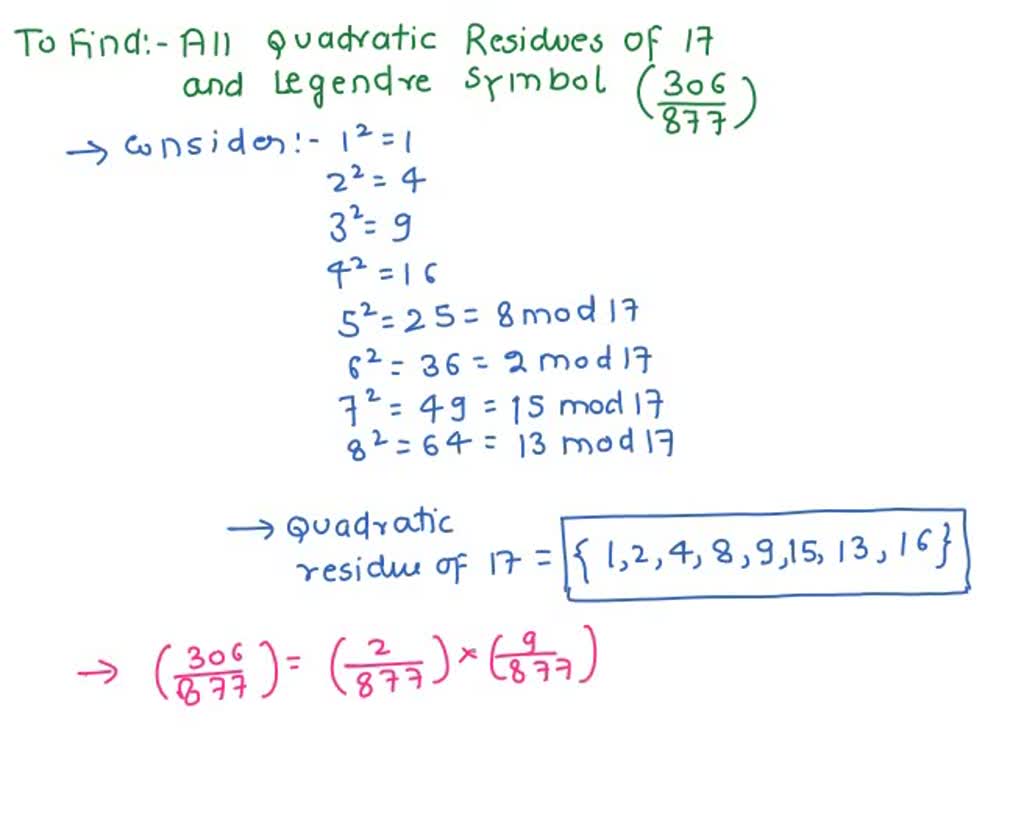 To Find:- All Quadratic Residues of 17
and Legendre Symbol (306/877)
→ Consider:- 1² = 1
2² = 4
3² = 9
4² = 16
5² = 25 = 8 mod 17
6² = 36 = 2 mod 17
7² = 49 = 15 mod 17
8² = 64 = 13 mod 17
→ Quadratic
residue of 17 = {1, 2, 4, 8, 9, 15, 13, 16}
→ (306/877) = (2/877) × (9/877)